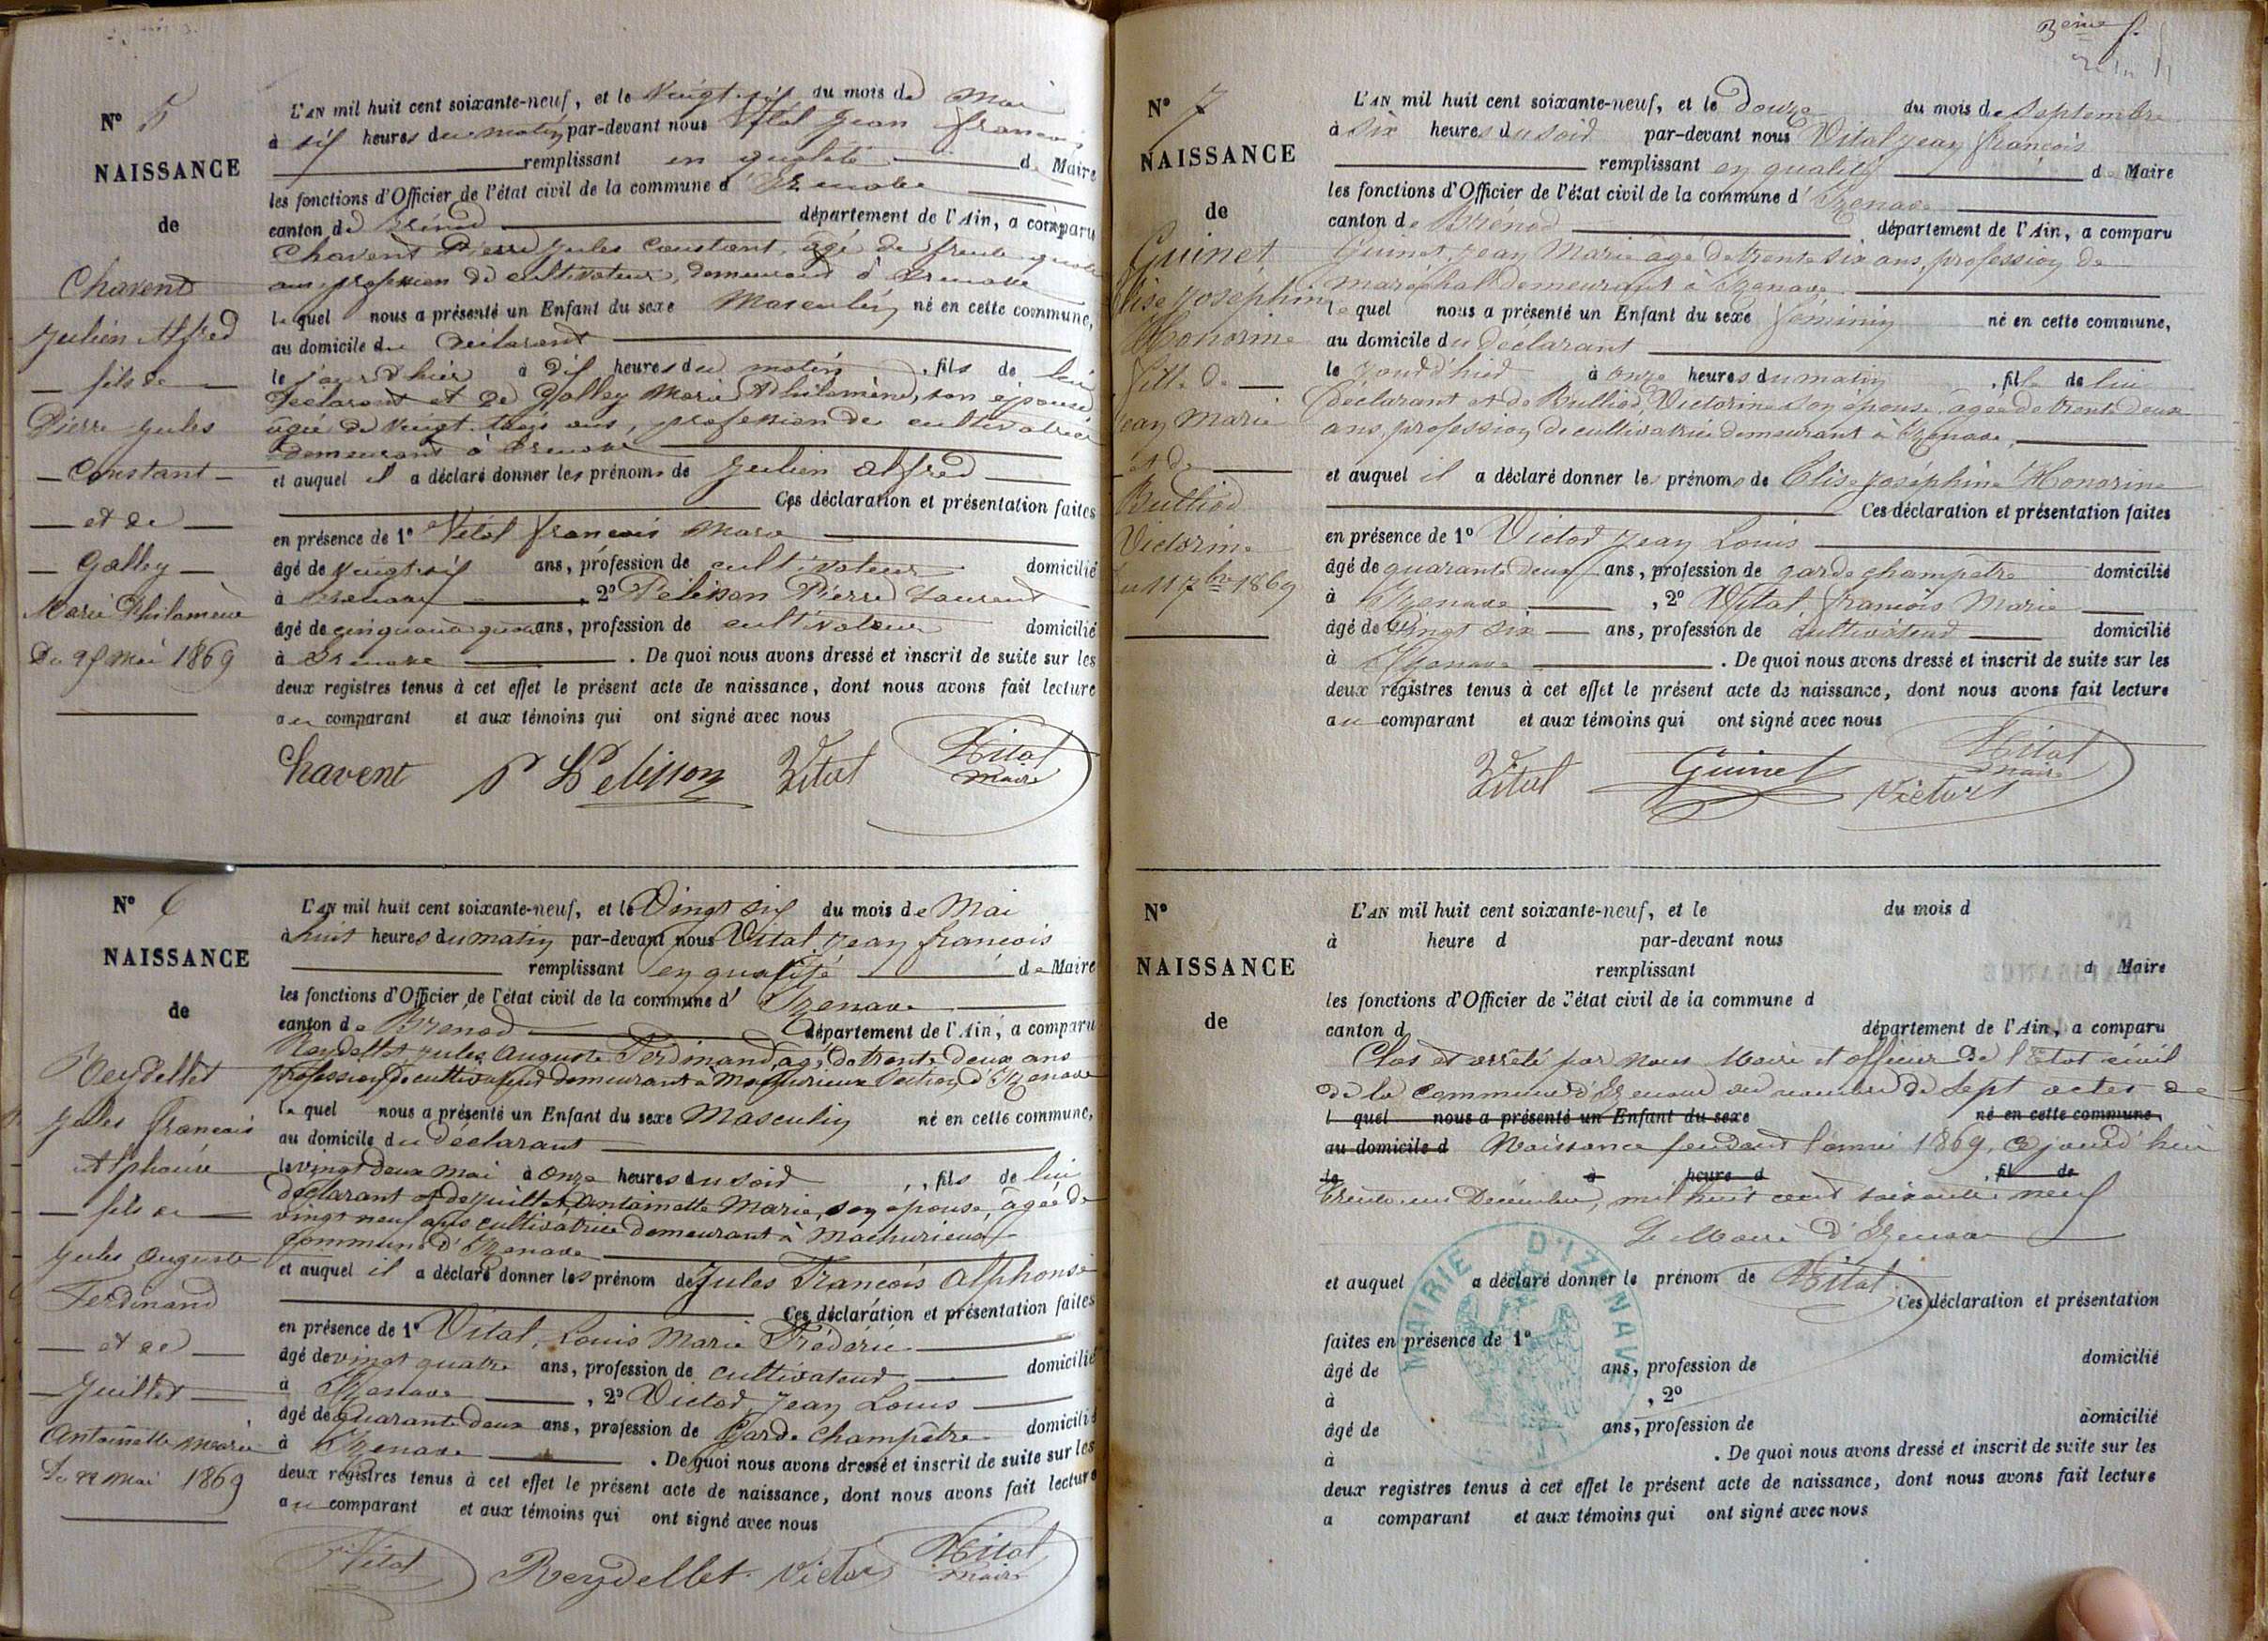 N° 5
NAISSANCE
de
Chavent
Julien Alfred
fils de
Pierre Jules
Constant
et de
Galley
Marie Philomène
Du 25 Mai 1869
L'AN mil huit cent soixante-neuf, et le Vingt six du mois de Mai
à six heures du matin par-devant nous Vital Jean François
remplissant en qualité de Maire
les fonctions d'Officier de l'état civil de la commune d' Izenave
canton de Brénod département de l'Ain, a comparu
Chavent Pierre Jules Constant, âgé de trente quatre
ans profession de cultivateur, demeurant à Izenave
lequel nous a présenté un Enfant du sexe Masculin né en cette commune,
au domicile du Déclarant
le jour d'hier à dix heures du matin, fils de lui
Déclarant et de Galley Marie Philomène, son épouse
âgée de vingt trois ans, profession de cultivatrice
demeurant à Izenave
et auquel il a déclaré donner les prénoms de Julien Alfred
Ces déclaration et présentation faites
en présence de 1° Vital François Marie
âgé de vingt six ans, profession de cultivateur domicilié
à Izenave, 2° Pélisson Pierre Laurent
âgé de cinquante quatre ans, profession de cultivateur domicilié
à Izenave. De quoi nous avons dressé et inscrit de suite sur les
deux registres tenus à cet effet le présent acte de naissance, dont nous avons fait lecture
au comparant et aux témoins qui ont signé avec nous
Chavent P Pelisson Vital Vital
Maire
N° 6
NAISSANCE
de
Reydellet
Jules François
Alphonse
fils de
Jules Auguste
Ferdinand
et de
Juillet
Antoinette Marie
Du 22 Mai 1869
L'AN mil huit cent soixante-neuf, et le Vingt six du mois de Mai
à huit heures du matin par-devant nous Vital Jean François
remplissant en qualité de Maire
les fonctions d'Officier de l'état civil de la commune d' Izenave
canton de Brénod département de l'Ain, a comparu
Reydellet Jules Auguste Ferdinand, âgé de trente deux ans
profession de cultivateur demeurant à Machurieux Section d'Izenave
lequel nous a présenté un Enfant du sexe Masculin né en cette commune,
au domicile du déclarant
le vingt deux Mai à onze heures du soir, fils de lui
déclarant et de Juillet Antoinette Marie, son épouse, âgée de
vingt neuf ans cultivatrice demeurant à Machurieux
Commune d'Izenave
et auquel il a déclaré donner les prénom de Jules François Alphonse
Ces déclaration et présentation faites
en présence de 1° Vital, Louis Marie Frédéric
âgé de vingt quatre ans, profession de cultivateur domicilié
à Izenave, 2° Victor Jean Louis
âgé de quarante deux ans, profession de Garde Champêtre domicilié
à Izenave. De quoi nous avons dressé et inscrit de suite sur les
deux registres tenus à cet effet le présent acte de naissance, dont nous avons fait lecture
au comparant et aux témoins qui ont signé avec nous
Vital Reydellet Victor Vital
Maire
3ème f.
N° 7
NAISSANCE
de
Guinet
Elise Joséphine
Honorine
fille de
Jean Marie
et de
Bulliod
Victorine
Du 11 7bre 1869
L'AN mil huit cent soixante-neuf, et le douze du mois de Septembre
à six heures du soir par-devant nous Vital Jean François
remplissant en qualité de Maire
les fonctions d'Officier de l'état civil de la commune d' Izenave
canton de Brénod département de l'Ain, a comparu
Guinet, Jean Marie âgé de trente six ans, profession de
maréchal demeurant à Izenave
lequel nous a présenté un Enfant du sexe féminin né en cette commune,
au domicile du déclarant
le jour d'hier à onze heures du matin, fille de lui
déclarant et de Bulliod, Victorine son épouse, âgée de trente deux
ans, profession de cultivatrice demeurant à Izenave
et auquel il a déclaré donner les prénoms de Elise Joséphine Honorine
Ces déclaration et présentation faites
en présence de 1° Victor Jean Louis
âgé de quarante deux ans, profession de garde champêtre domicilié
à Izenave, 2° Vital, François Marie
âgé de vingt six ans, profession de cultivateur domicilié
à Izenave. De quoi nous avons dressé et inscrit de suite sur les
deux registres tenus à cet effet le présent acte de naissance, dont nous avons fait lecture
au comparant et aux témoins qui ont signé avec nous
Vital Guinet Vital
Maire
Victor
N°
NAISSANCE
de
L'AN mil huit cent soixante-neuf, et le du mois d
à heure d par-devant nous
remplissant d Maire
les fonctions d'Officier de l'état civil de la commune d
canton d département de l'Ain, a comparu
Clos et arrêté par nous Maire et officier de l'Etat civil
de la Commune d'Izenave au nombre de Sept actes de
l quel nous a présenté un Enfant du sexe né en cette commune
au domicile d Naissance pendant l'année 1869, Ce jourd'hui
le à heure d, fil de
trente un Décembre, mil huit cent soixante neuf
Le Maire d'Izenave
et auquel a déclaré donner le prénom de Vital
Ces déclaration et présentation
MAIRIE D'IZENAVE
faites en présence de 1°
âgé de ans, profession de domicilié
à , 2°
âgé de ans, profession de domicilié
à . De quoi nous avons dressé et inscrit de suite sur les
deux registres tenus à cet effet le présent acte de naissance, dont nous avons fait lecture
a comparant et aux témoins qui ont signé avec nous